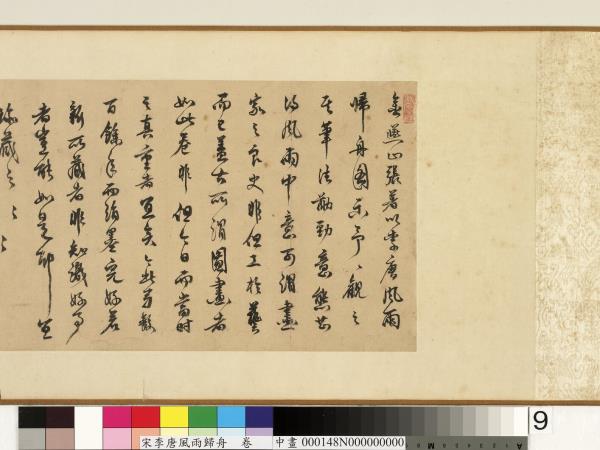 金燕山張著以李唐風雨
歸舟圖示予、觀之
其筆法勁意態甚
得風雨中意可謂畫
家之良史非但工於藝
而已蓋古所謂圖畫者
如此卷非但今日而當時
之真重者宜矣今此方數
百餘年而絹墨完好若
新所藏者非知識好事
者豈能如是耶宜
珍藏之之
宋李唐風雨歸舟 卷
中畫 000148N000000000
9
M
A